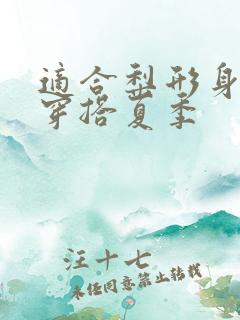 適合梨形身
穿搭夏季
汪十七
未经同意禁止转载